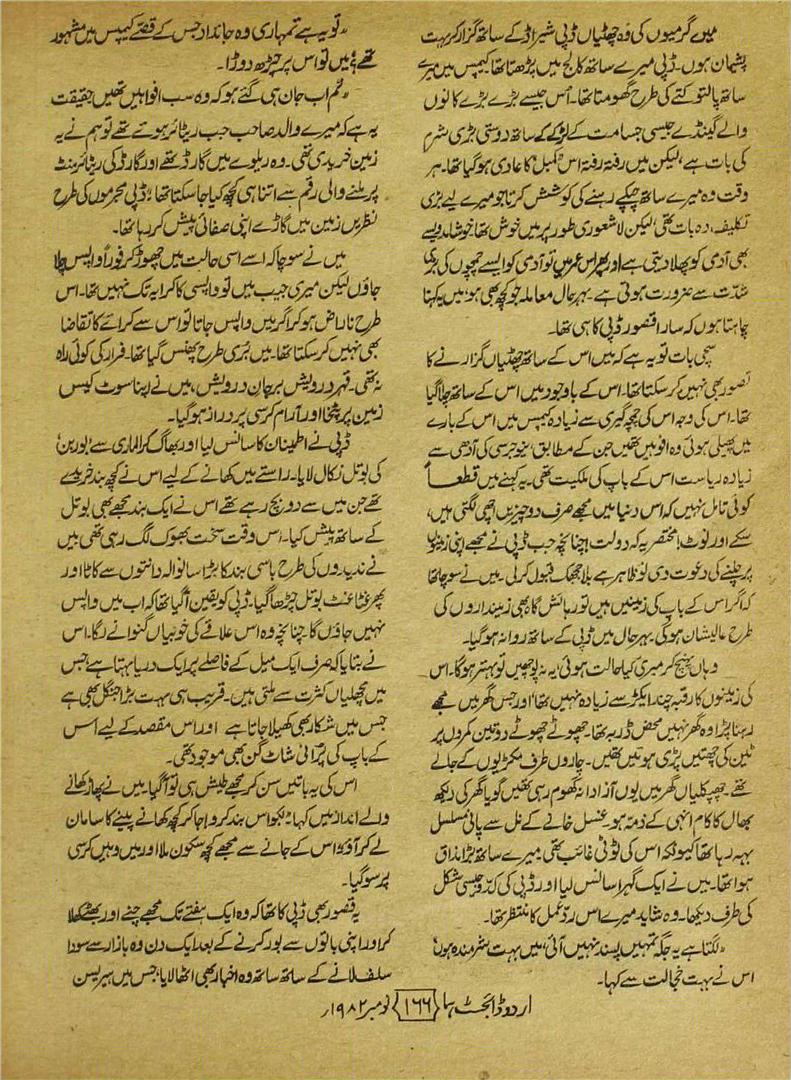 میں گرمیوں کی وہ چھٹیاں ڈپی شیراڈ کے ساتھ گزار کر بہت
پشیمان ہوں۔ ڈپی میرے ساتھ کالج میں پڑھتا تھا۔ کیمپس میں میرے
ساتھ پالتو کتے کی طرح گھومتا تھا۔ اُس جیسے بڑے بڑے کانوں
والے گینڈے جیسی جسامت کے لڑکے کے ساتھ دوستی بڑی شرم
کی بات ہے، لیکن میں رفتہ رفتہ اس کمبل کا عادی ہو گیا تھا۔ ہر
وقت وہ میرے ساتھ چپکے رہنے کی کوشش کرتا جو میرے لیے بڑی
تکلیف دہ بات تھی لیکن لاشعوری طور پر میں خوش تھا خوشامد ویسے
بھی آدمی کو پھلا دیتی ہے اور پھر اس عمر میں تو آدمی کو ایسے چمچوں کی بڑی
شدّت سے ضرورت ہوتی ہے۔ بہرحال معاملہ جو کچھ بھی ہو، میں یہ کہنا
چاہتا ہوں کہ سارا قصور ڈپی کا ہی تھا۔
سچی بات تو یہ ہے کہ میں اس کے ساتھ چھٹیاں گزارنے کا
تصور بھی نہیں کر سکتا تھا۔ اس کے باوجود میں اس کے ساتھ چلا گیا
تھا۔ اس کی وجہ اس کی چمچہ گیری سے زیادہ کیمپس میں اس کے بارے
میں پھیلی ہوئی وہ افواہیں تھیں جن کے مطابق نیو جرسی کی آدھی سے
زیادہ ریاست اس کے باپ کی ملکیت تھی۔ یہ کہنے میں قطعاً
کوئی تامل نہیں کہ اس دنیا میں مجھے صرف دو چیزیں اچھی لگتی ہیں،
سکے اور نوٹ! مختصر یہ کہ دولت! چنانچہ جب ڈپی نے مجھے اپنی زمینوں
پر چلنے کی دعوت دی تو ظاہر ہے بلا جھجک قبول کر لی۔ میں نے سوچا تھا
کہ اگر اس کے باپ کی زمینیں ہیں تو رہائش گاہ بھی زمینداروں کی
طرح عالیشان ہو گی۔ بہرحال میں ڈپی کے ساتھ روانہ ہو گیا۔
وہاں پہنچ کر میری کیا حالت ہوئی، یہ نہ پوچھیں تو بہتر ہو گا۔ اس
کی زمینوں کا رقبہ چند ایکڑ سے زیادہ نہیں تھا اور جس گھر میں مجھے
رہنا پڑا وہ گھر نہیں محض ڈربہ تھا۔ چھوٹے چھوٹے دو تین کمروں پر
ٹین کی چھتیں پڑی ہوئیں تھیں۔ چاروں طرف مکڑیوں کے جالے
تھے۔ چھپکلیاں گھر میں یوں آزادانہ گھوم رہی تھیں گویا گھر کی دیکھ
بھال کا کام انہی کے ذمہ ہو۔ غسل خانے کے نل سے پانی مسلسل
بہہ رہا تھا کیونکہ اس کی ٹونٹی غائب تھی۔ میرے ساتھ بڑا مذاق
ہوا تھا۔ میں نے ایک گہرا سانس لیا اور ڈپی کی کدو جیسی شکل
کی طرف دیکھا۔ وہ شاید میرے اس ردِّ عمل کا منتظر تھا۔
”لگتا ہے یہ جگہ تمہیں پسند نہیں آئی، میں بہت شرمندہ ہوں“
اس نے بہت خجالت سے کہا۔
”تو یہ ہے تمہاری وہ جائداد جس کے قصّے کیمپس میں مشہور
تھے؟“ میں تو اس پر چڑھ دوڑا۔
”تم اب جان ہی گئے ہو کہ وہ سب افواہیں تھیں حقیقت
یہ ہے کہ میرے والد صاحب جب ریٹائر ہوئے تھے تو ہم نے یہ
زمین خریدی تھی۔ وہ ریلوے میں گارڈ تھے اور گارڈ کی ریٹائرمنٹ
پر ملنے والی رقم سے اتنا ہی کچھ کیا جا سکتا تھا“ ڈپی مجرموں کی طرح
نظریں زمین میں گاڑے اپنی صفائی پیش کر رہا تھا۔
میں نے سوچا کہ اسے اسی حالت میں چھوڑ کر فوراً واپس چلا
جاؤں لیکن میری جیب میں تو واپسی کا کرایہ تک نہیں تھا۔ اس
طرح ناراض ہو کر اگر میں واپس جاتا تو اس سے کرائے کا تقاضا
بھی نہیں کر سکتا تھا۔ میں بُری طرح پھنس گیا تھا۔ فرار کی کوئی راہ
نہ تھی۔ قہرِ درویش بر جانِ درویش، میں نے اپنا سوٹ کیس
زمین پر پٹخا اور آرام کرسی پر دراز ہو گیا۔
ڈپی نے اطمینان کا سانس لیا اور بھاگ کر الماری سے بوربن
کی بوتل نکال لایا۔ راستے میں کھانے کے لیے اس نے کچھ بند خریدے
تھے جن میں سے دو بچ رہے تھے اس نے ایک بند مجھے بھی بوتل
کے ساتھ پیش کیا۔ اس وقت سخت بھوک لگ رہی تھی میں
نے ندیدوں کی طرح باسی بند کا بڑا سا نوالہ دانتوں سے کاٹا اور
پھر غٹا غٹ بوتل چڑھا گیا۔ ڈپی کو یقین آ گیا تھا کہ اب میں واپس
نہیں جاؤں گا۔ چنانچہ وہ اس علاقے کی خوبیاں گنوانے لگا۔ اس
نے بتایا کہ صرف ایک میل کے فاصلے پر ایک دریا بہتا ہے جس
میں مچھلیاں کثرت سے ملتی ہیں۔ قریب ہی بہت بڑا جنگل بھی ہے
جس میں شکار بھی کھیلا جاتا ہے اور اس مقصد کے لیے اس
کے باپ کی پرانی شاٹ گن بھی موجود تھی۔
اس کی یہ باتیں سن کر مجھے طیش ہی تو آ گیا۔ میں نے پھاڑ کھانے
والے انداز میں کہا ”بکواس بند کرو! جا کر کچھ کھانے پینے کا سامان
لے کر آؤ“ اس کے جانے سے مجھے کچھ سکون ملا اور میں وہیں کرسی
پر سو گیا۔
یہ قصور بھی ڈپی کا تھا کہ وہ ایک ہفتے تک مجھے چنے اور بھٹے کھلا
کر اور اپنی باتوں سے بور کرنے کے بعد ایک دن وہ بازار سے سودا
سلف لانے کے ساتھ ساتھ وہ اخبار بھی اٹھا لایا، جس میں ہیریسن
اردو ڈائجسٹ ۱۶۶ نومبر ۱۹۸۲ء